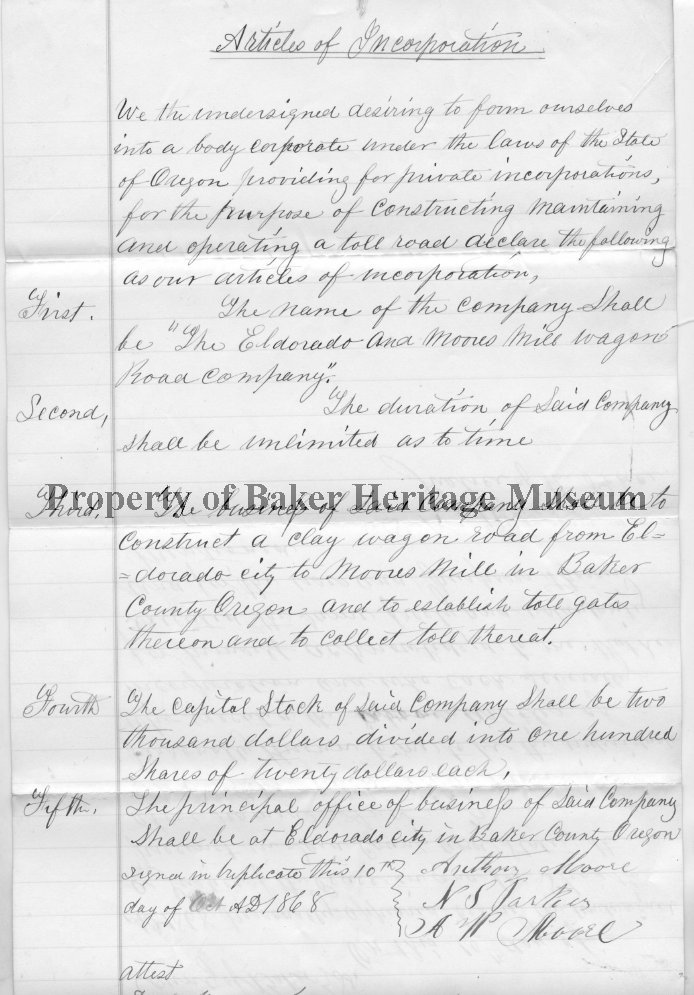 Articles of Incorporation
We the undersigned desiring to form ourselves
into a body corporate under the laws of the State
of Oregon providing for private incorporations,
for the purpose of constructing maintaining
and operating a toll road declare the following
as our articles of incorporation,
First. The name of the company shall
be "The Eldorado and Moores Mill wagon
Road company".
Second, The duration of said Company
shall be unlimited as to time
Property of Baker Heritage Museum
Third. The business of said Company shall be to
construct a clay wagon road from El=
=dorado city to Moores Mill in Baker
County Oregon and to establish toll gates
thereon and to collect toll thereat.
Fourth The Capital Stock of said Company shall be two
thousand dollars divided into one hundred
shares of twenty dollars each,
Fifth. The principal office of business of said Company
shall be at Eldorado city in Baker County Oregon
signed in triplicate this 10th Anthony Moore
day of Oct AD 1868 N S Parker
A W Moore
attest